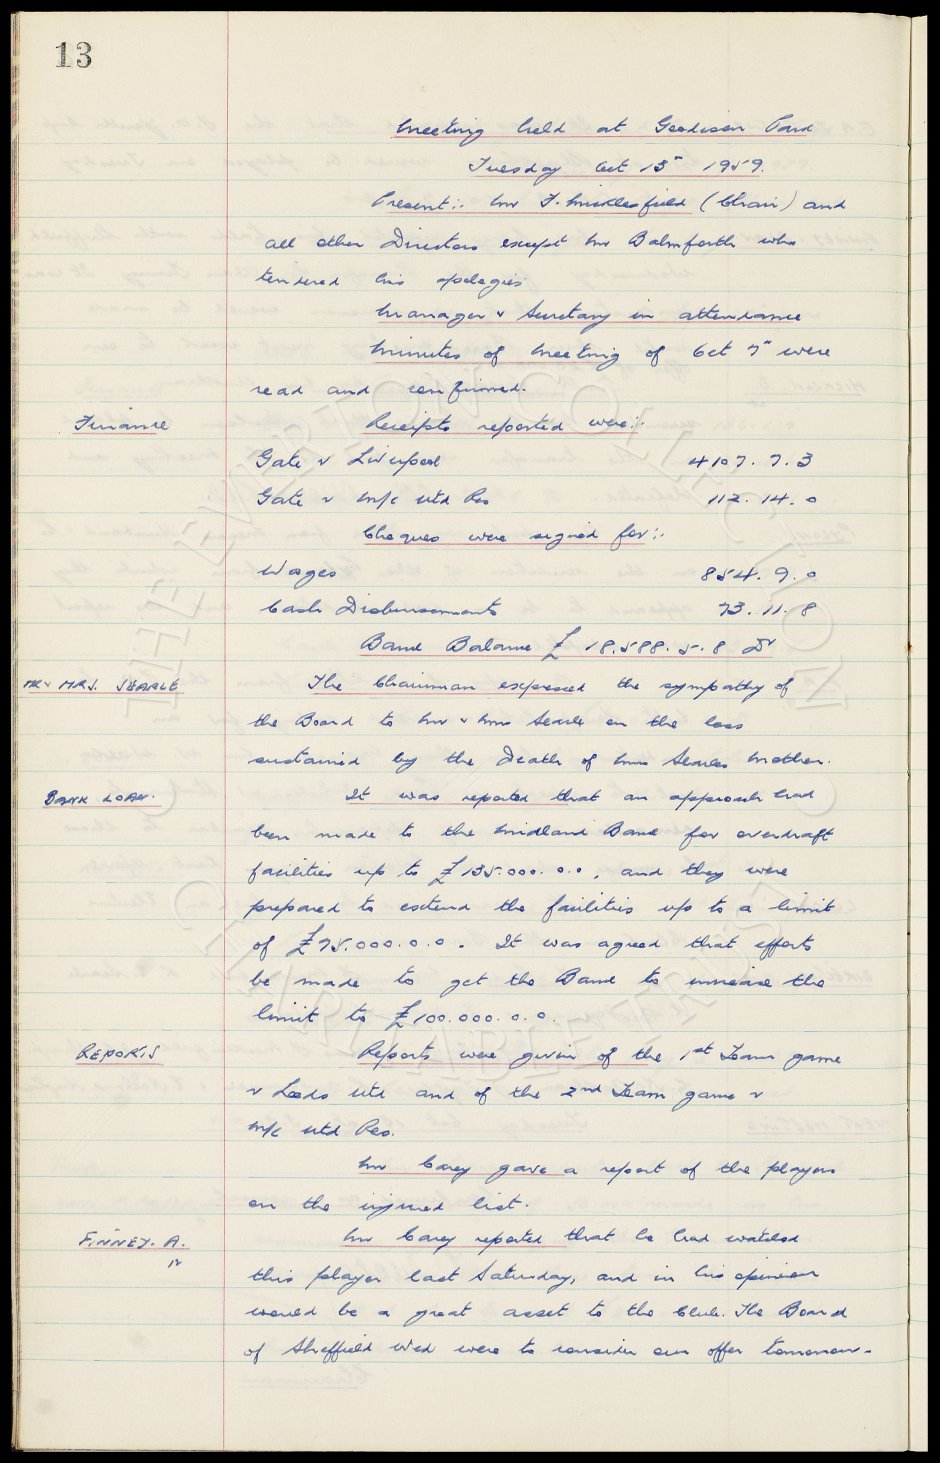 13
Meeting held at Goodison Park
Tuesday Oct 13th 1959.
Present:- Mr F. Micklesfield (Chair) and
all other Directors except Mr Balmforth who
tendered his apologies
Manager & Secretary in attendance
Minutes of Meeting of Oct 7th were
read and confirmed.
Finance Receipts reported were:-
Gate v Liverpool 4107. 7. 3
Gate v M/c Utd Res 112. 14. 0
Cheques were signed for:-
Wages 854. 9. 0
Cash Disbursements 73. 11. 8
Bank Balance £18.588. 5. 8 Dr
MR & MRS. SEARLE The Chairman expressed the sympathy of
the Board to Mr & Mrs Searle on the loss
sustained by the Death of Mrs Searles Mother.
BANK LOAN. It was reported that an approach had
been made to the Midland Bank for overdraft
facilities up to £135.000. 0. 0, and they were
prepared to extend the facilities up to a limit
of £75.000. 0. 0. It was agreed that efforts
be made to get the Bank to increase the
limit to £100.000. 0. 0.
REPORTS Reports were given of the 1st Team game
v Leeds Utd and of the 2nd Team game v
M/c Utd Res.
Mr Carey gave a report of the players
on the injured list.
FINNEY. A. Mr Carey reported that he had watched
this player last Saturday, and in his opinion
would be a great asset to the Club. The Board
of Sheffield Wed were to consider our offer tomorrow.
THE EVERTON COLLECTION
CHARITABLE TRUST